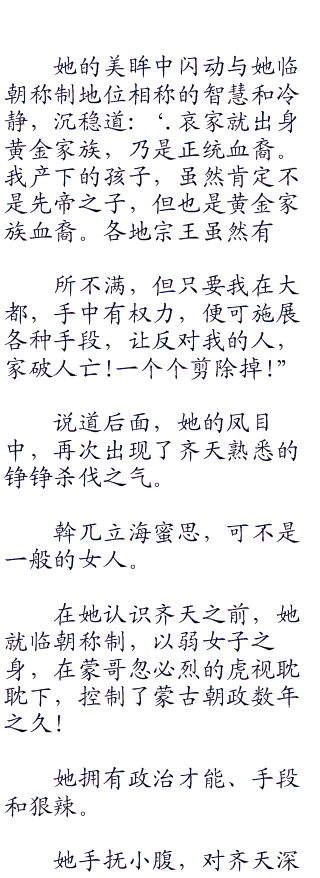 她的美眸中闪动与她临
朝称制地位相称的智慧和冷
静，沉稳道：‘．哀家就出身
黄金家族，乃是正统血裔。
我产下的孩子，虽然肯定不
是先帝之子，但也是黄金家
族血裔。各地宗王虽然有
所不满，但只要我在大
都，手中有权力，便可施展
各种手段，让反对我的人，
家破人亡！一个个剪除掉！”
说道后面，她的凤目
中，再次出现了齐天熟悉的
铮铮杀伐之气。
斡兀立海蜜思，可不是
一般的女人。
在她认识齐天之前，她
就临朝称制，以弱女子之
身，在蒙哥忽必烈的虎视眈
眈下，控制了蒙古朝政数年
之久！
她拥有政治才能、手段
和狠辣。
她手抚小腹，对齐天深